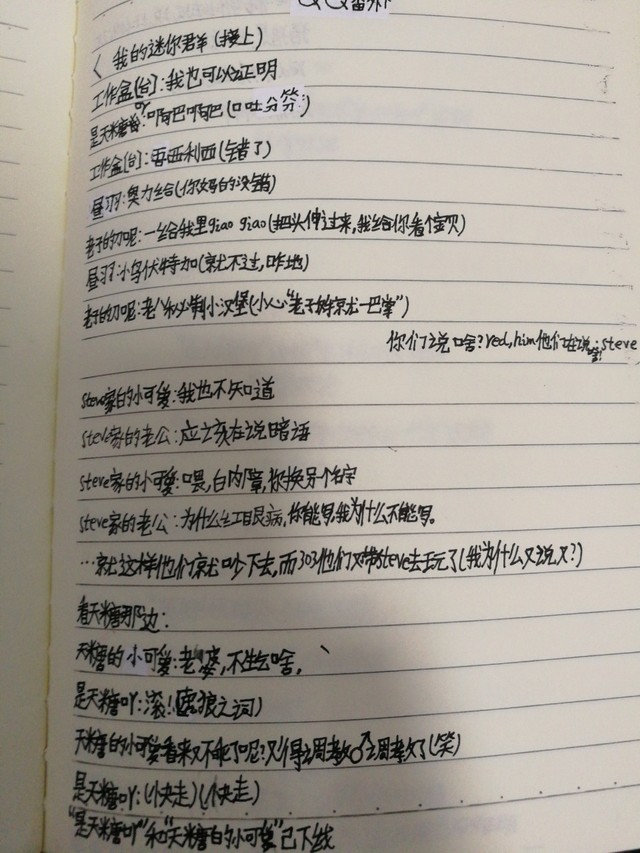 QQ番外
<我的迷你君羊(接上)
工作盒[台]:我也可以证明
是天糖 :啊巴啊巴(口吐分芬:)
工作盒[台]:吾西利西(错了)
昼羽:奥力给(你妈的没错)
老子的刀呢:一给我里giao giao(把头伸过来,我给你看个宝贝)
昼羽:小鸟伏特加(就不过,咋地)
老子的刀呢:老八秘制小汉堡(小心“老子 你就一巴掌”)
你们说啥?red,him他们在说啥:steve
steve家的小可爱:我也不知道
steve家的老公:应该在说暗语
steve家的小可爱:喂,白内障,你换另个名字
steve家的老公:为什么红眼病,你能写,我为什么不能写。
…就这样他们就吵下去,而303他们又带steve去玩了(我为什么又说又?)
看天糖那边:
天糖的小可爱:老婆,不生气啥,
是天糖吖:滚!(虎狼之词)
天糖的小可爱看来又不乖了呢?又得调教♂调教了(笑)
是天糖吖:(快走)(快走)
“是天糖吖”和“天糖的小可爱”已下线